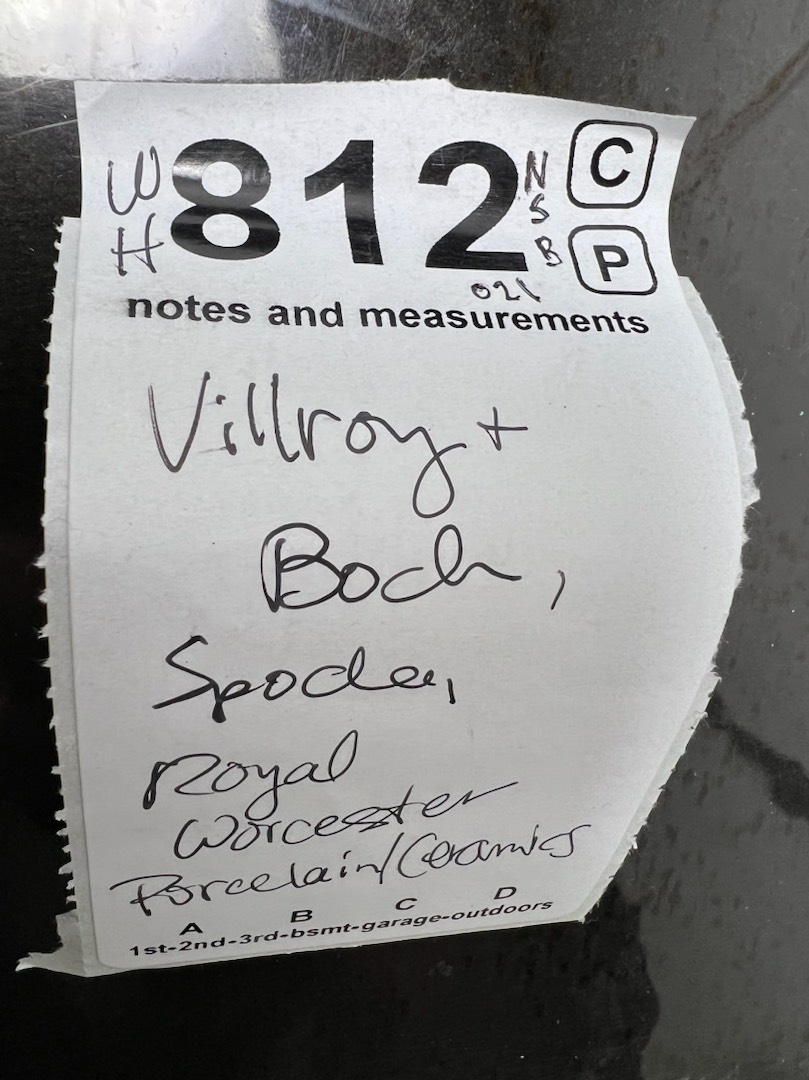 W 812 N C
H S
B P
021
notes and measurements
Villroy +
Boch,
Spode,
Royal
Worcester
Porcelain/Ceramics
A B C D
1st-2nd-3rd-bsmt-garage-outdoors